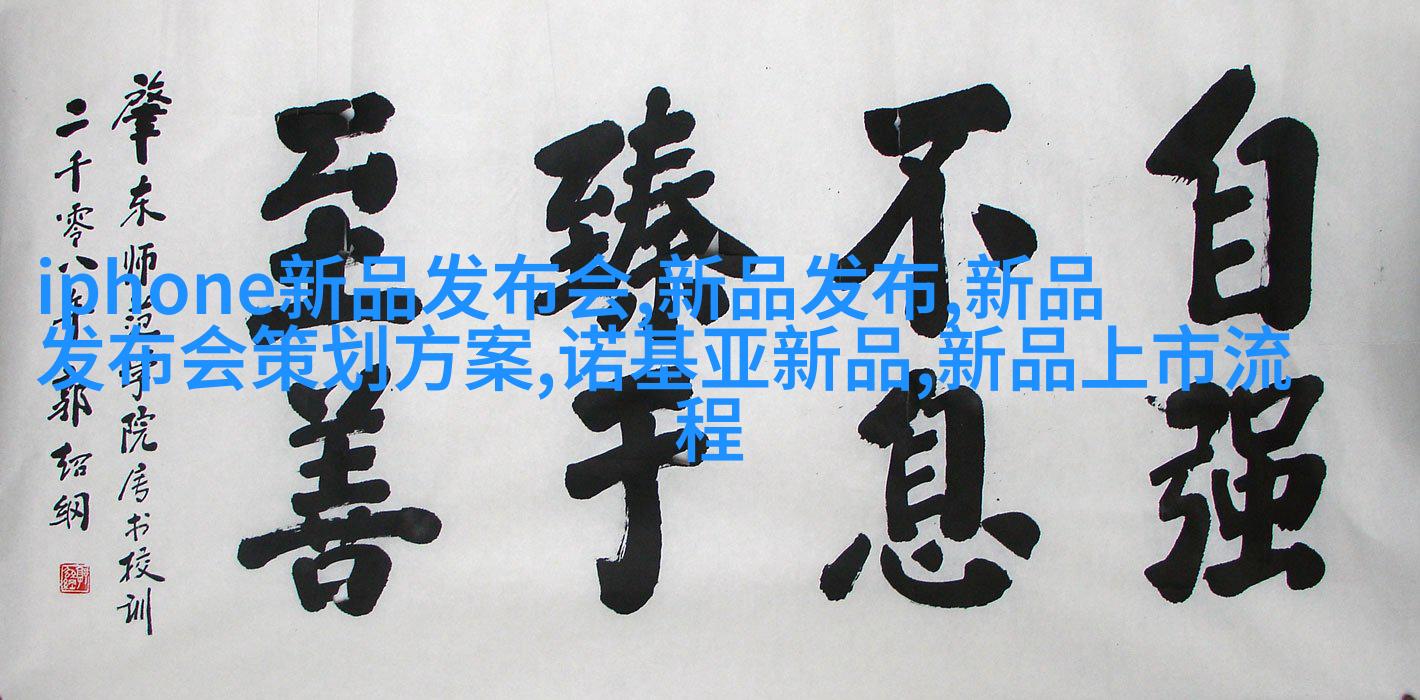 自强
不息
臻于
至善
肇东师范学院属书校训
二千零八年郭绍纲
iphone新品发布会,新品发布,新品
发布会策划方案,诺基亚新品,新品上市流
程